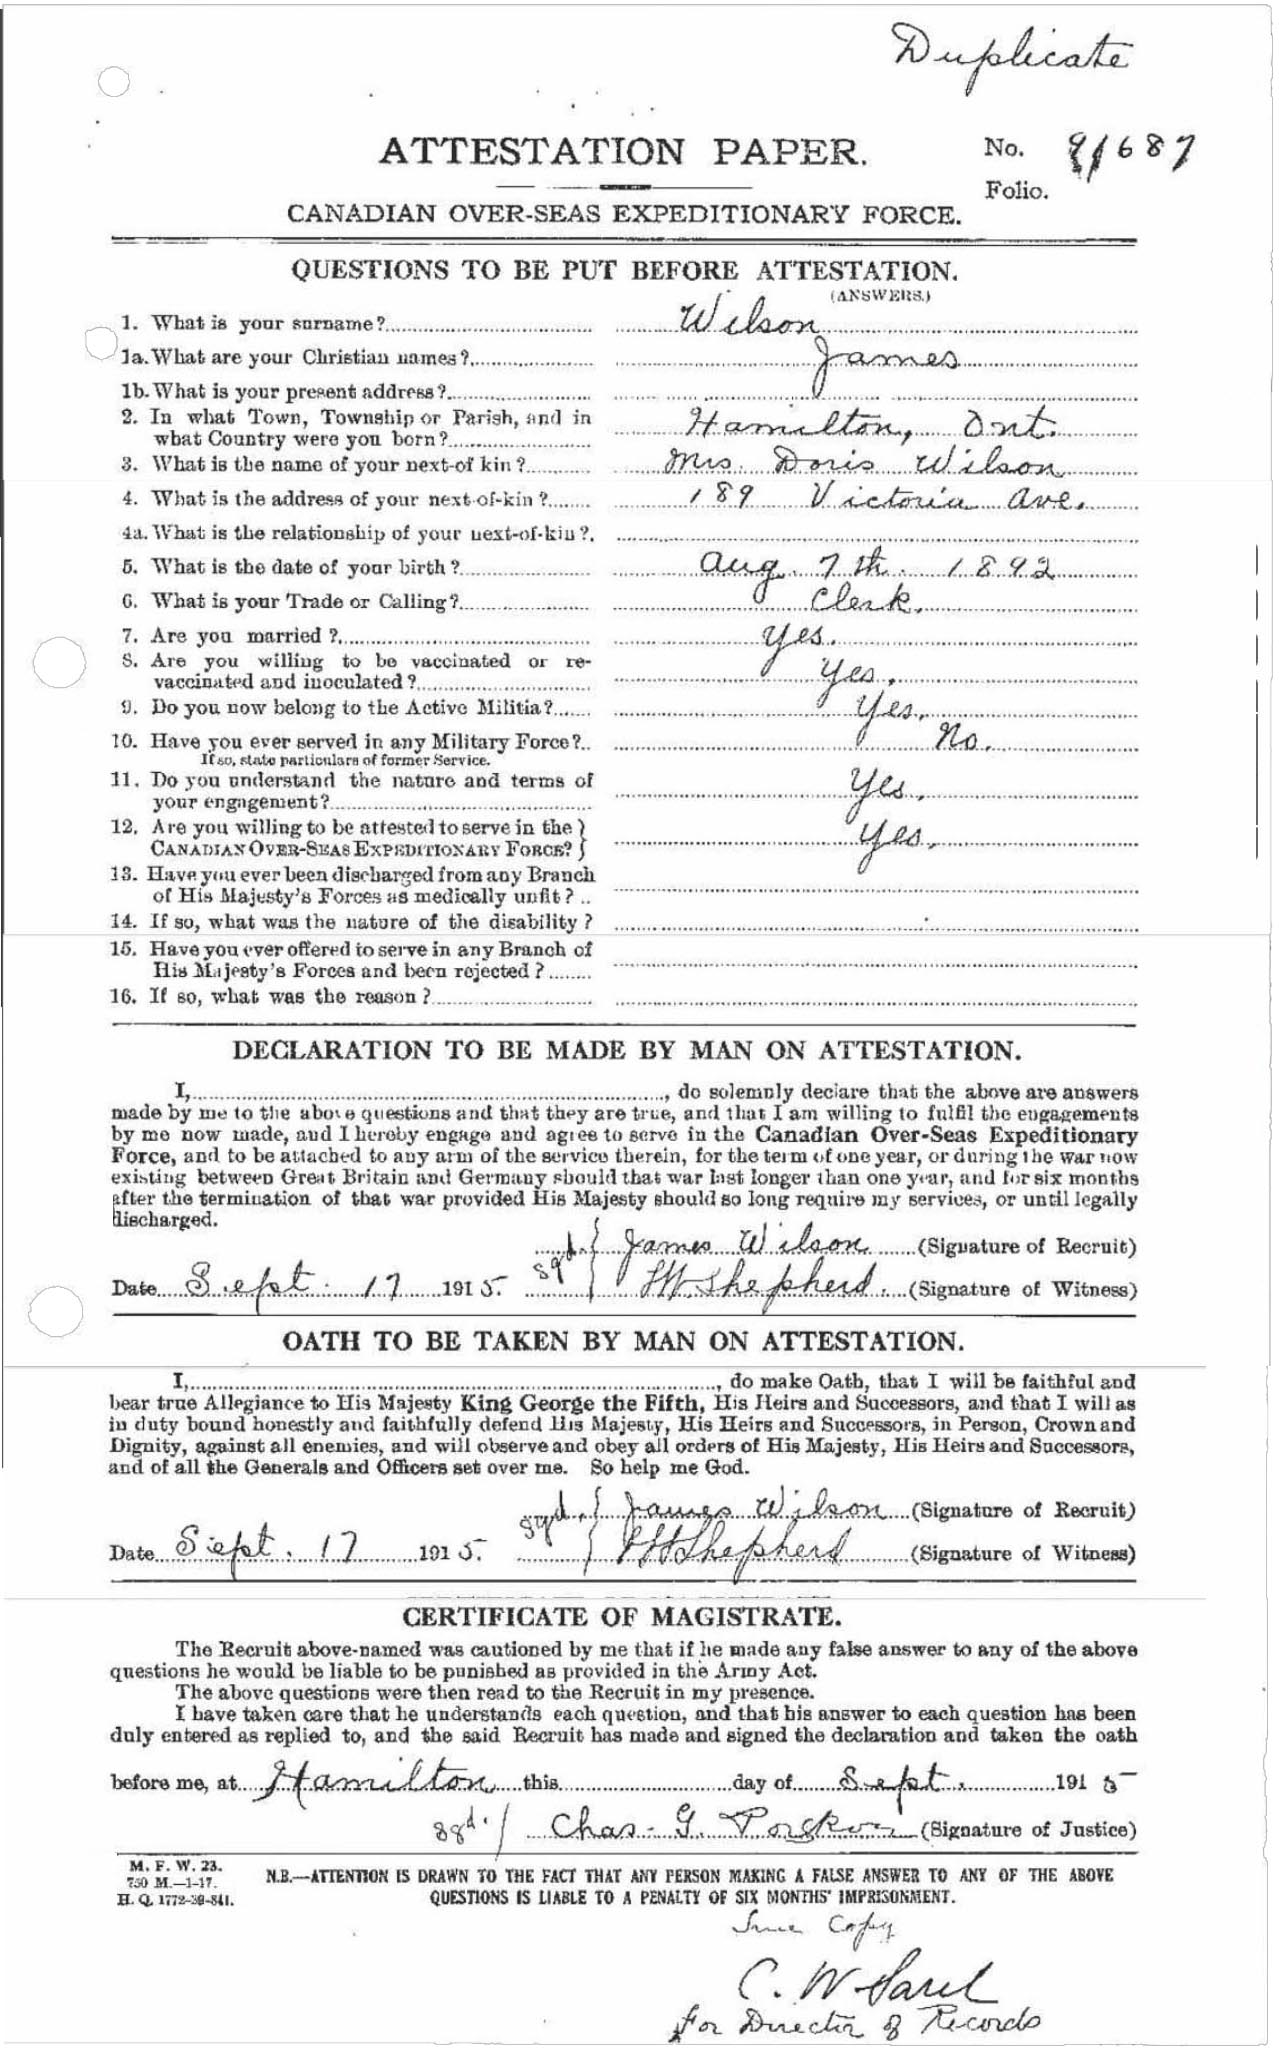 Duplicate
ATTESTATION PAPER.
No. 91687
Folio.
CANADIAN OVER-SEAS EXPEDITIONARY FORCE.
QUESTIONS TO BE PUT BEFORE ATTESTATION.
(ANSWERS.)
1. What is your surname? Wilson
1a. What are your Christian names? James
1b. What is your present address?
2. In what Town, Township or Parish, and in
what Country were you born? Hamilton, Ont.
3. What is the name of your next-of kin? Mrs. Doris Wilson
4. What is the address of your next-of-kin? 189 Victoria Ave.
4a. What is the relationship of your next-of-kin?
5. What is the date of your birth? Aug. 7th. 1892
6. What is your Trade or Calling? Clerk.
7. Are you married? Yes.
8. Are you willing to be vaccinated or re-
vaccinated and inoculated? Yes.
9. Do you now belong to the Active Militia? Yes.
10. Have you ever served in any Military Force? No.
If so, state particulars of former Service.
11. Do you understand the nature and terms of
your engagement? Yes.
12. Are you willing to be attested to serve in the
CANADIAN OVER-SEAS EXPEDITIONARY FORCE? Yes.
13. Have you ever been discharged from any Branch
of His Majesty's Forces as medically unfit?
14. If so, what was the nature of the disability?
15. Have you ever offered to serve in any Branch of
His Majesty's Forces and been rejected?
16. If so, what was the reason?
DECLARATION TO BE MADE BY MAN ON ATTESTATION.
I, , do solemnly declare that the above are answers
made by me to the above questions and that they are true, and that I am willing to fulfil the engagements
by me now made, and I hereby engage and agree to serve in the Canadian Over-Seas Expeditionary
Force, and to be attached to any arm of the service therein, for the term of one year, or during the war now
existing between Great Britain and Germany should that war last longer than one year, and for six months
after the termination of that war provided His Majesty should so long require my services, or until legally
discharged.
sgd. James Wilson (Signature of Recruit)
Date Sept. 17 1915. Shepherd. (Signature of Witness)
OATH TO BE TAKEN BY MAN ON ATTESTATION.
I, , do make Oath, that I will be faithful and
bear true Allegiance to His Majesty King George the Fifth, His Heirs and Successors, and that I will as
in duty bound honestly and faithfully defend His Majesty, His Heirs and Successors, in Person, Crown and
Dignity, against all enemies, and will observe and obey all orders of His Majesty, His Heirs and Successors,
and of all the Generals and Officers set over me. So help me God.
sgd. James Wilson (Signature of Recruit)
Date Sept. 17 1915. Shepherd (Signature of Witness)
CERTIFICATE OF MAGISTRATE.
The Recruit above-named was cautioned by me that if he made any false answer to any of the above
questions he would be liable to be punished as provided in the Army Act.
The above questions were then read to the Recruit in my presence.
I have taken care that he understands each question, and that his answer to each question has been
duly entered as replied to, and the said Recruit has made and signed the declaration and taken the oath
before me, at Hamilton this day of Sept. 1915
sgd. Chas. G. (Signature of Justice)
M. F. W. 23.
750 M.—1-17.
H. Q. 1772-39-841.
N.B.—ATTENTION IS DRAWN TO THE FACT THAT ANY PERSON MAKING A FALSE ANSWER TO ANY OF THE ABOVE
QUESTIONS IS LIABLE TO A PENALTY OF SIX MONTHS' IMPRISONMENT.
True Copy
C. W.
for Director of Records